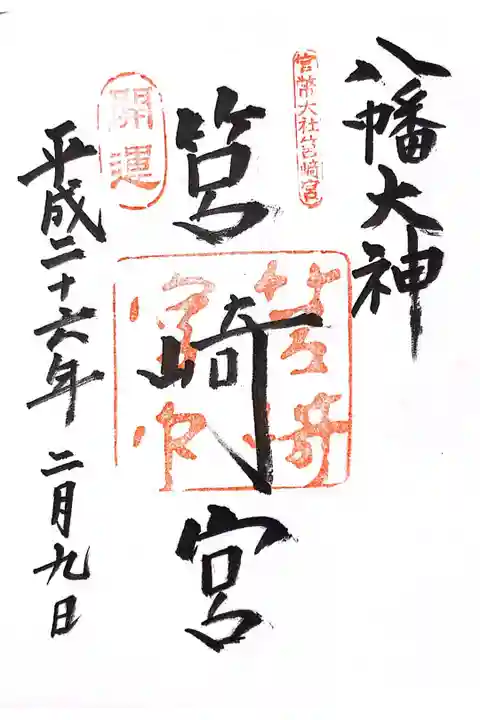 八幡大神
官幣大社筥崎宮
筥崎宮
筥崎宮印
開運
平成二十六年 二月九日